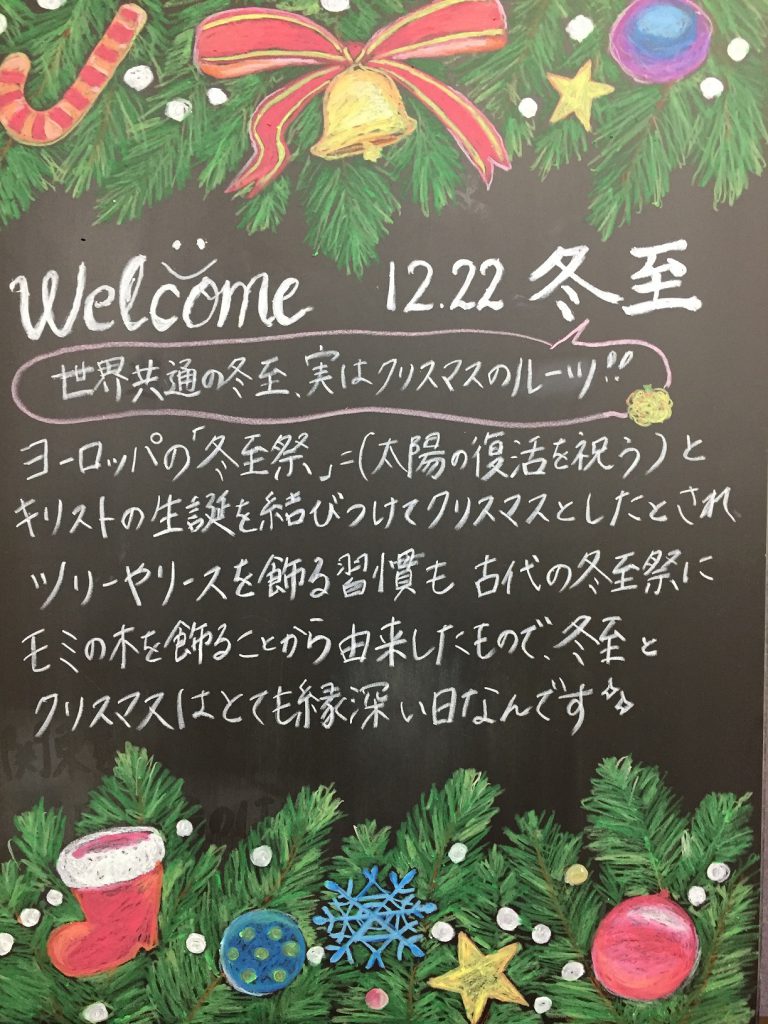 Welcome 12.22 冬至
世界共通の冬至、実はクリスマスのルーツ!!
ヨーロッパの「冬至祭」=(太陽の復活を祝う)と
キリストの生誕を結びつけてクリスマスとしたとされ
ツリーやリースを飾る習慣も 古代の冬至祭に
モミの木を飾ることから由来したもので、冬至と
クリスマスはとても縁深い日なんです